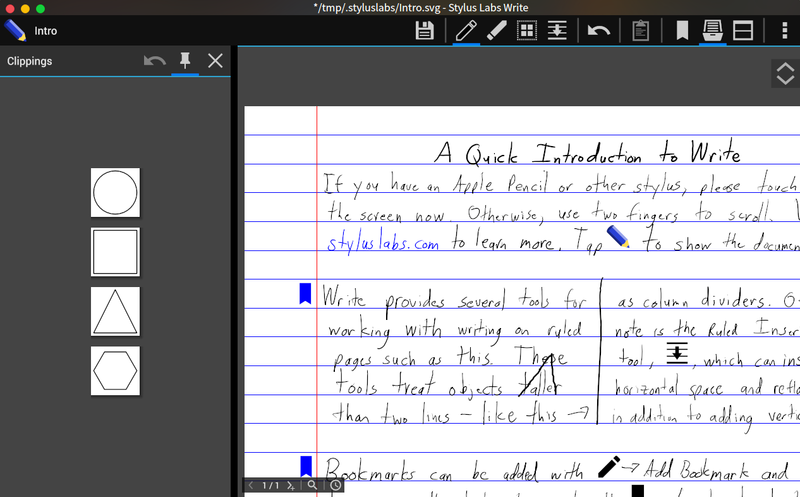 */tmp/.styluslabs/Intro.svg - Stylus Labs Write
Intro
Clippings
A Quick Introduction to Write
If you have an Apple Pencil or other stylus, please touch
the screen now. Otherwise, use two fingers to scroll.
styluslabs.com to learn more. Tap to show the documen
Write provides several tools for
working with writing on ruled
pages such as this. These
tools treat objects taller
than two lines – like this →
as column dividers. O
note is the Ruled Inser
tool, , which can ins
horizontal space and refl
in addition to adding verti
Bookmarks can be added with → Add Bookmark and
1/1